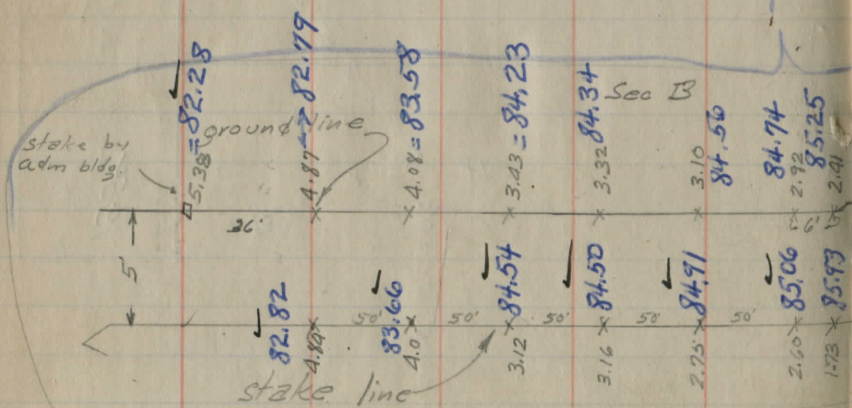 Sec B
stake by
adm bldg.
ground line
5.38 = 82.28
4.87 → 82.79
4.08 = 83.58
3.43 = 84.23
3.32 84.34
3.10 84.56
2.92 84.74
2.41 85.25
36'
6'
5'
50' 50' 50' 50' 50'
82.82
4.84
83.66
4.0
84.54
3.12
84.50
3.16
84.91
2.75
85.06
2.60
85.93
1.73
stake line